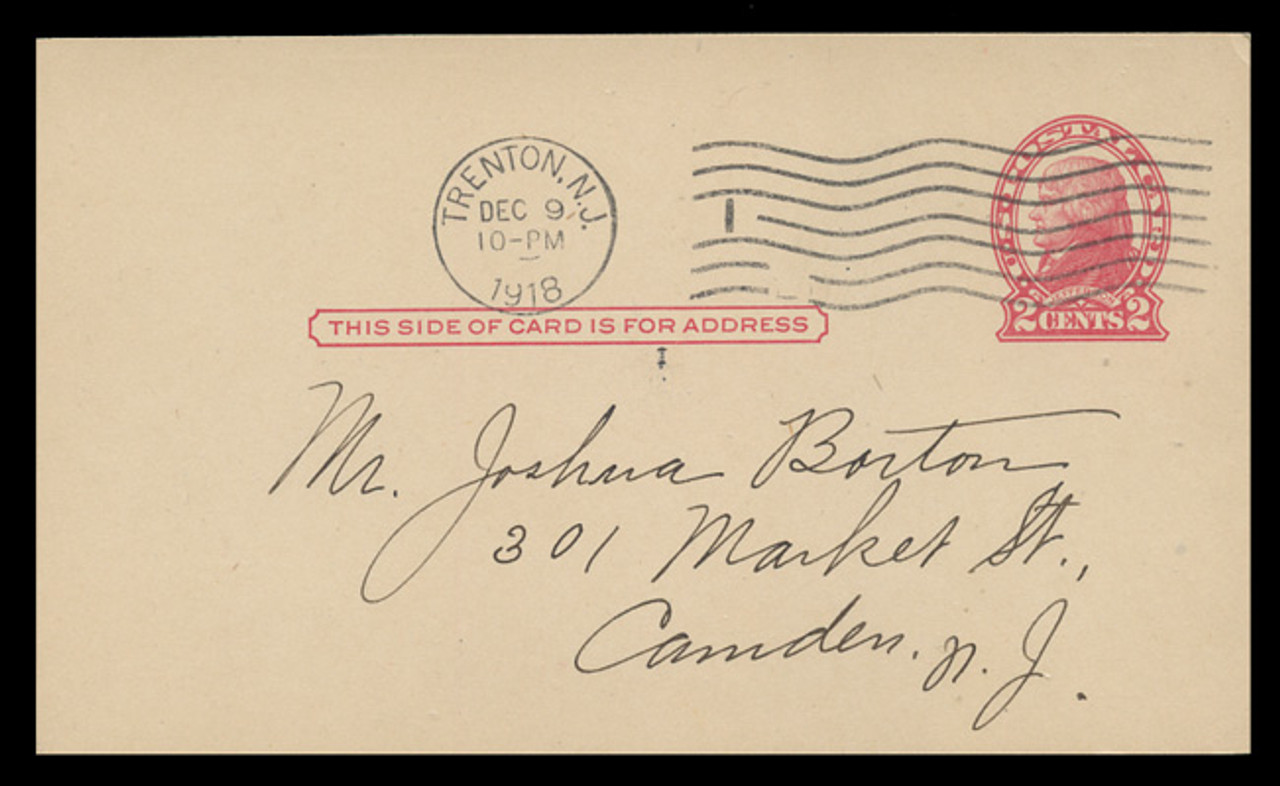 TRENTON, N.J.
DEC 9
10-PM
1918
U.S. POSTAL CARD
JEFFERSON
2 CENTS 2
THIS SIDE OF CARD IS FOR ADDRESS
Mr. Joshua Borton
301 Market St.,
Camden. N. J.